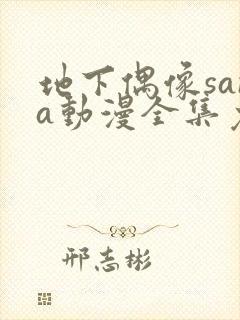 地下偶像sa
a動漫全集
邢志彬